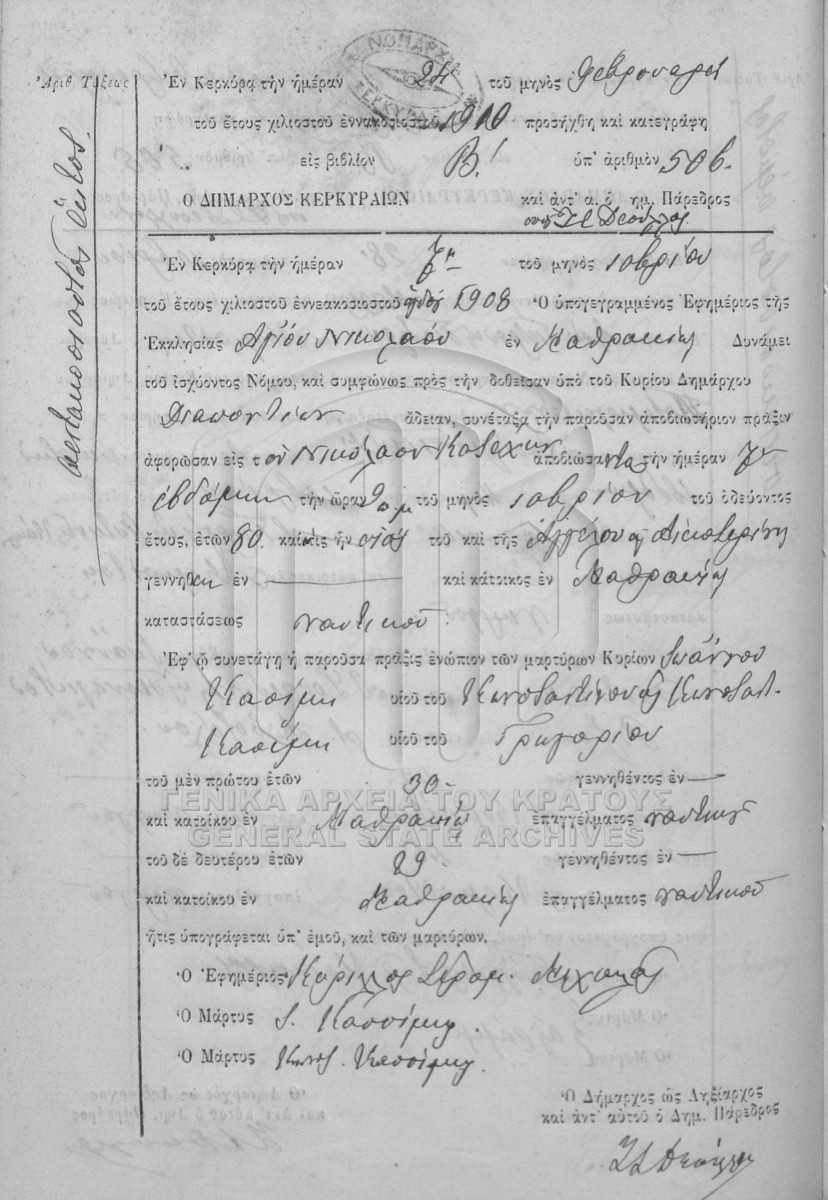 Ἀριθ. Τάξεως
Ἐν Κερκύρᾳ τὴν ἡμέραν 24 τοῦ μηνὸς Φεβρουαρίου
τοῦ ἔτους χιλιοστοῦ ἐννακοσιοστοῦ 1910 προσήχθη καὶ κατεγράφη
εἰς βιβλίον Β! ὑπ' ἀριθμὸν 506.
Ο ΔΗΜΑΡΧΟΣ ΚΕΡΚΥΡΑΙΩΝ καὶ ἀντ' α. ὁ δημ. Πάρεδρος
Ἐν Κερκύρᾳ τὴν ἡμέραν 7η τοῦ μηνὸς 10βρίου
τοῦ ἔτους χιλιοστοῦ ἐννεακοσιοστοῦ 1908 Ὁ ὑπογεγραμμένος Ἐφημέριος τῆς
Ἐκκλησίας Ἁγίου Νικολάου ἐν Μαθρακίῳ Δυνάμει
τοῦ ἰσχύοντος Νόμου, καὶ συμφώνως πρὸς τὴν δοθεῖσαν ὑπὸ τοῦ Κυρίου Δημάρχου
Διαποντίων ἄδειαν, συνέταξα τὴν παροῦσαν ἀποβιωτήριον πρᾶξιν
ἀφορῶσαν εἰς τὸν Νικόλαον ἀποβιώσαντα τὴν ἡμέραν 7ην
ἑβδόμην τὴν ὥραν 9 π.μ τοῦ μηνὸς 10βρίου τοῦ ὁδεύοντος
ἔτους, ἐτῶν 80. υἱὸς τοῦ καὶ τῆς Ἀγγέλου καὶ Αἰκατερίνης
γεννηθεὶς ἐν — καὶ κάτοικος ἐν Μαθρακίῳ
καταστάσεως ναυτικοῦ
Ἐφ' ᾧ συνετάγη ἡ παροῦσα πρᾶξις ἐνώπιον τῶν μαρτύρων Κυρίων Ἰωάννου
Κασίμη υἱοῦ τοῦ Κωνσταντίνου καὶ Κωνσταντ.
Κασίμη υἱοῦ τοῦ Γρηγορίου
τοῦ μὲν πρώτου ἐτῶν 30 - γεννηθέντος ἐν —
ΓΕΝΙΚΑ ΑΡΧΕΙΑ ΤΟΥ ΚΡΑΤΟΥΣ
καὶ κατοίκου ἐν Μαθρακίῳ ἐπαγγέλματος ναυτικοῦ
GENERAL STATE ARCHIVES
τοῦ δὲ δευτέρου ἐτῶν 29 γεννηθέντος ἐν —
καὶ κατοίκου ἐν Μαθρακίῳ ἐπαγγέλματος ναυτικοῦ
ἥτις ὑπογράφεται ὑπ' ἐμοῦ, καὶ τῶν μαρτύρων.
Ὁ Ἐφημέριος Κύριλλος
Ὁ Μάρτυς Ι. Κασσίμης.
Ὁ Μάρτυς Κωνσ. Κασσίμης
Ὁ Δήμαρχος ὡς Ληξίαρχος
καὶ ἀντ' αὐτοῦ ὁ Δημ. Πάρεδρος